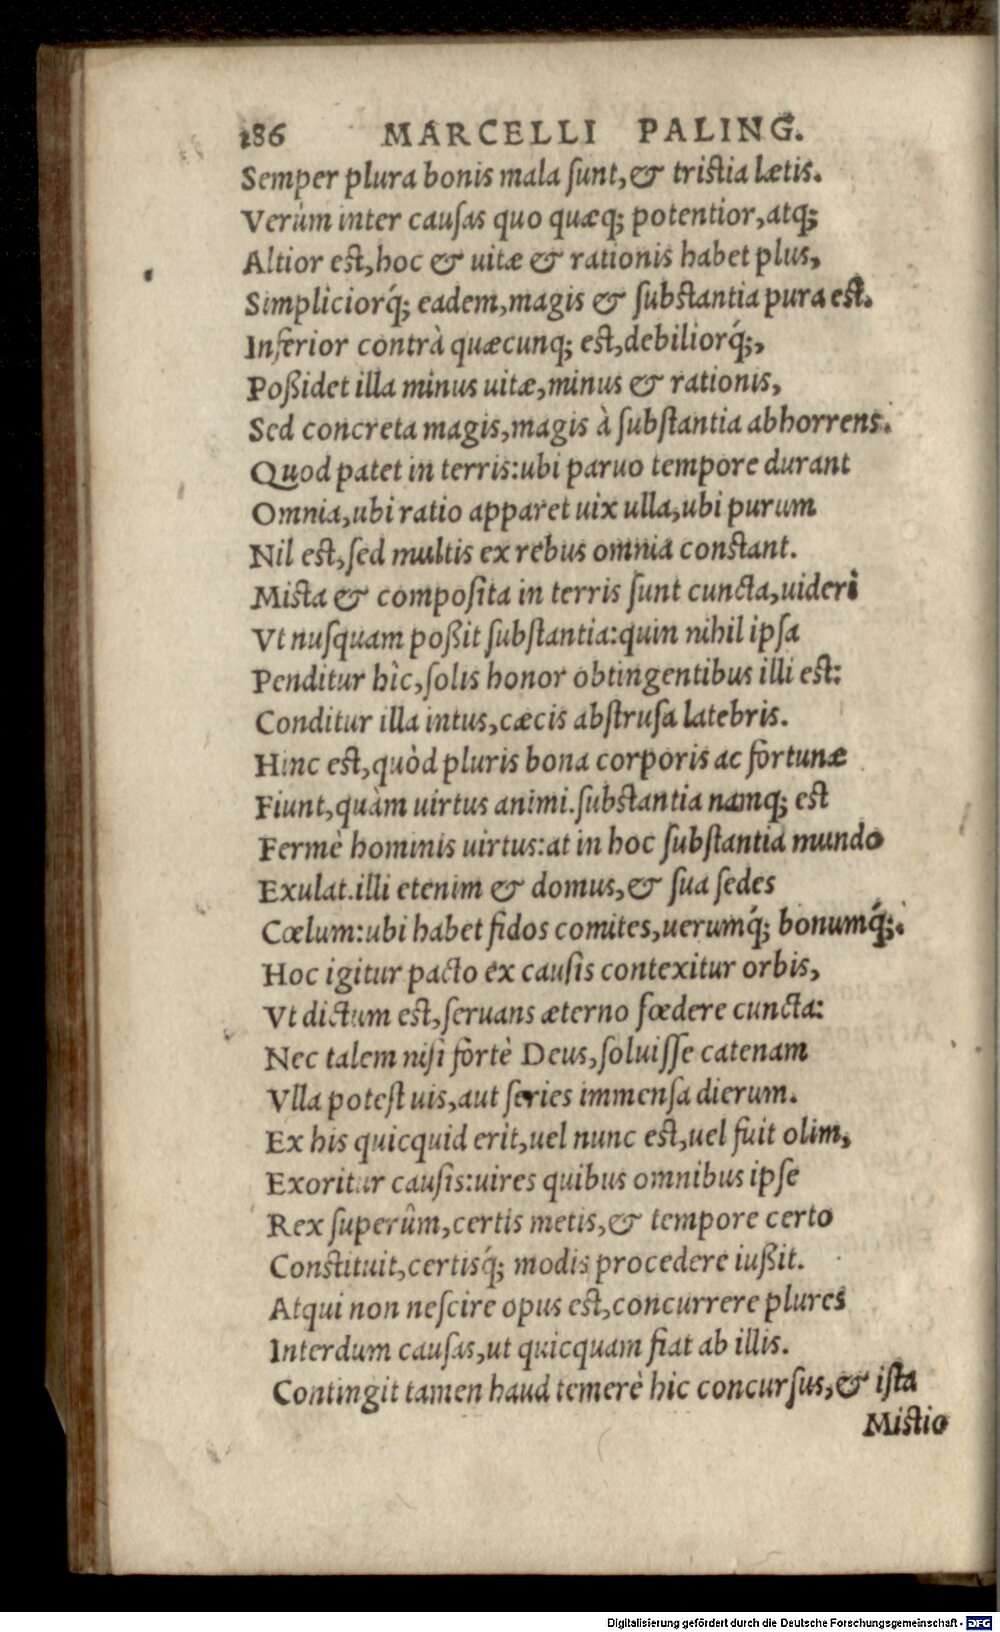 186 MARCELLI PALING.
Semper plura bonis mala ſunt, & triſtia lætis.
Verùm inter cauſas quo quæq; potentior, atq;
Altior eſt, hoc & uitæ & rationis habet plus,
Simpliciorq́; eadem, magis & ſubſtantia pura eſt.
Inferior contrà quæcunq; eſt, debiliorq́;,
Poßidet illa minus uitæ, minus & rationis,
Sed concreta magis, magis à ſubſtantia abhorrens.
Quod patet in terris: ubi paruo tempore durant
Omnia, ubi ratio apparet uix ulla, ubi purum
Nil eſt, ſed multis ex rebus omnia conſtant.
Miſta & compoſita in terris ſunt cuncta, uideri
Vt nuſquam poßit ſubſtantia: quin nihil ipſa
Penditur hìc, ſolis honor obtingentibus illi eſt:
Conditur illa intus, cæcis abſtruſa latebris.
Hinc eſt, quòd pluris bona corporis ac fortunæ
Fiunt, quàm uirtus animi. ſubſtantia namq; eſt
Fermè hominis uirtus: at in hoc ſubſtantia mundo
Exulat. illi etenim & domus, & ſua ſedes
Cœlum: ubi habet fidos comites, uerumq́; bonumq́;.
Hoc igitur pacto ex cauſis contexitur orbis,
Vt dictum eſt, ſeruans æterno fœdere cuncta:
Nec talem niſi fortè Deus, ſoluiſſe catenam
Vlla poteſt uis, aut ſeries immenſa dierum.
Ex his quicquid erit, uel nunc eſt, uel fuit olim,
Exoritur cauſis: uires quibus omnibus ipſe
Rex ſuperûm, certis metis, & tempore certo
Conſtituit, certisq́; modis procedere iußit.
Atqui non neſcire opus eſt, concurrere plures
Interdum cauſas, ut quicquam fiat ab illis.
Contingit tamen haud temerè hic concurſus, & iſta
Miſtio
Digitalisierung gefördert durch die Deutsche Forschungsgemeinschaft - DFG